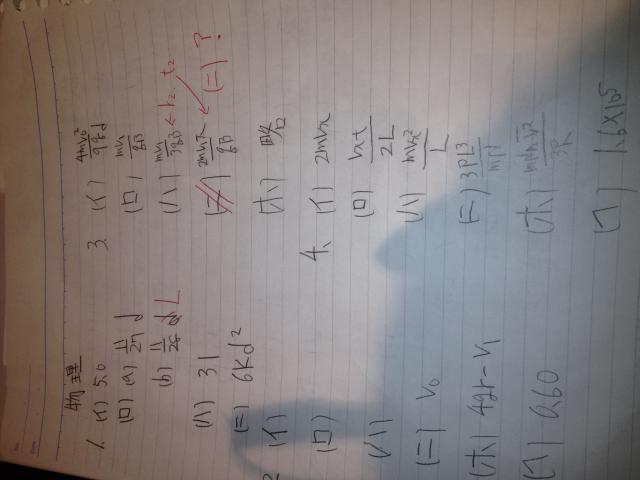 物理
1. (イ) 5.0
(ロ) (a) 11/25 d
(b) 11/25 d L
(ハ) 31
(ニ) 6Kd²
2 (イ)
(ロ)
(ハ)
(ニ) V₀
(ホ) 4gr-V₁
(ヘ) 0.60
3. (イ) 4mV₀²/9qd
(ロ) mV₁/qB
(ハ) mV₁/3qB ← t₂. t₂
(ニ) 2mVx/qB ← (ニ)?
(ホ) 略
4. (イ) 2mVx
(ロ) Vxt/2L
(ハ) mVx²/L
(ニ) 3PL³
(ホ)
(ヘ) 1.6×10⁵